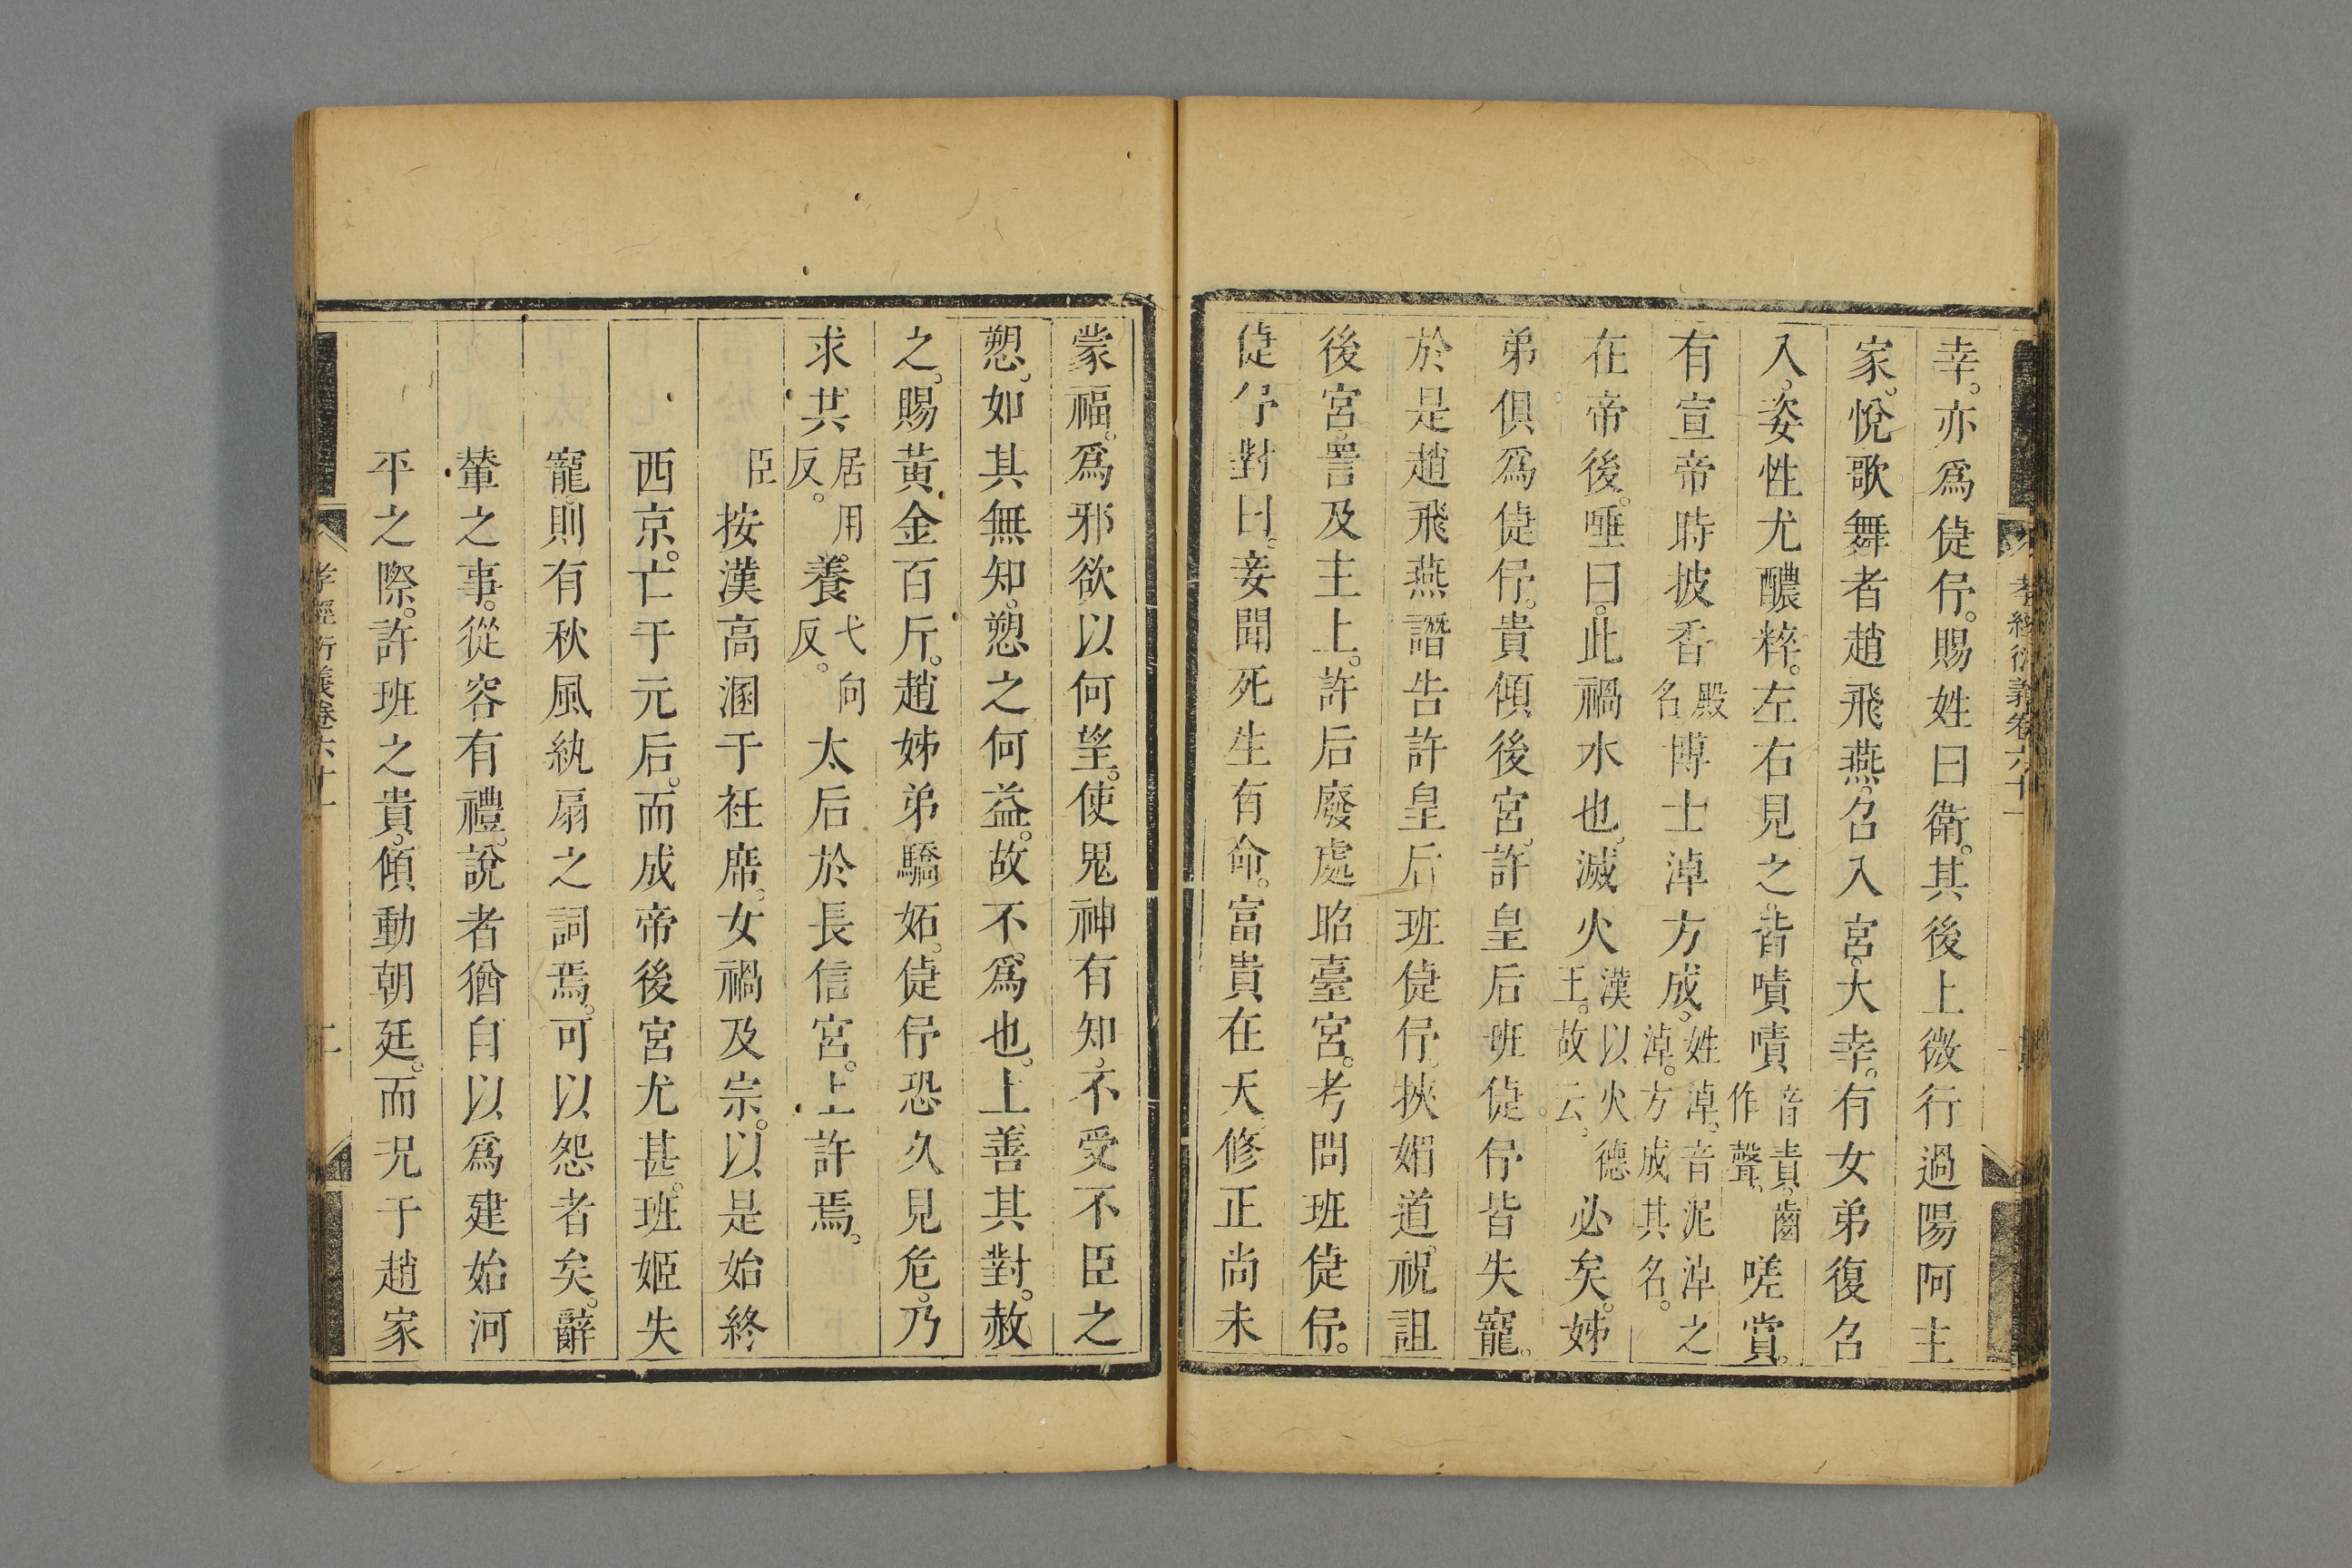 孝經衍義卷六十一
幸。亦爲倢伃。賜姓曰衛。其後上微行過陽阿主
家。悅歌舞者趙飛燕。召入宮。大幸。有女弟復召
入。姿性尤醲粹。左右見之。皆嘖嘖音責。齒作聲。嗟賞。
有宣帝時披香殿名博士淖方成。姓淖。音泥淖之淖。方成其名。
在帝後。唾曰。此禍水也。滅火漢以火德王。故云。必矣。姊
弟俱爲倢伃。貴傾後宮。許皇后班倢伃皆失寵。
於是趙飛燕譖告許皇后班倢伃。挾媚道。祝詛
後宮。詈及主上。許后廢處昭臺宮。考問班倢伃。
倢伃對曰。妾聞死生有命。富貴在天。修正尚未
蒙福。爲邪欲以何望。使鬼神有知。不受不臣之
愬。如其無知。愬之何益。故不爲也。上善其對。赦
之。賜黃金百斤。趙姊弟驕妬。倢伃恐久見危。乃
求共居用反。養弋向反。太后於長信宮。上許焉。
臣按漢高溷于衽席。女禍及宗。以是始終
西京。亡于元后。而成帝後宮尤甚。班姬失
寵。則有秋風紈扇之詞焉。可以怨者矣。辭
輦之事。從容有禮。說者猶自以爲建始河
平之際。許班之貴。傾動朝廷。而况于趙家
孝經衍義卷六十一
二